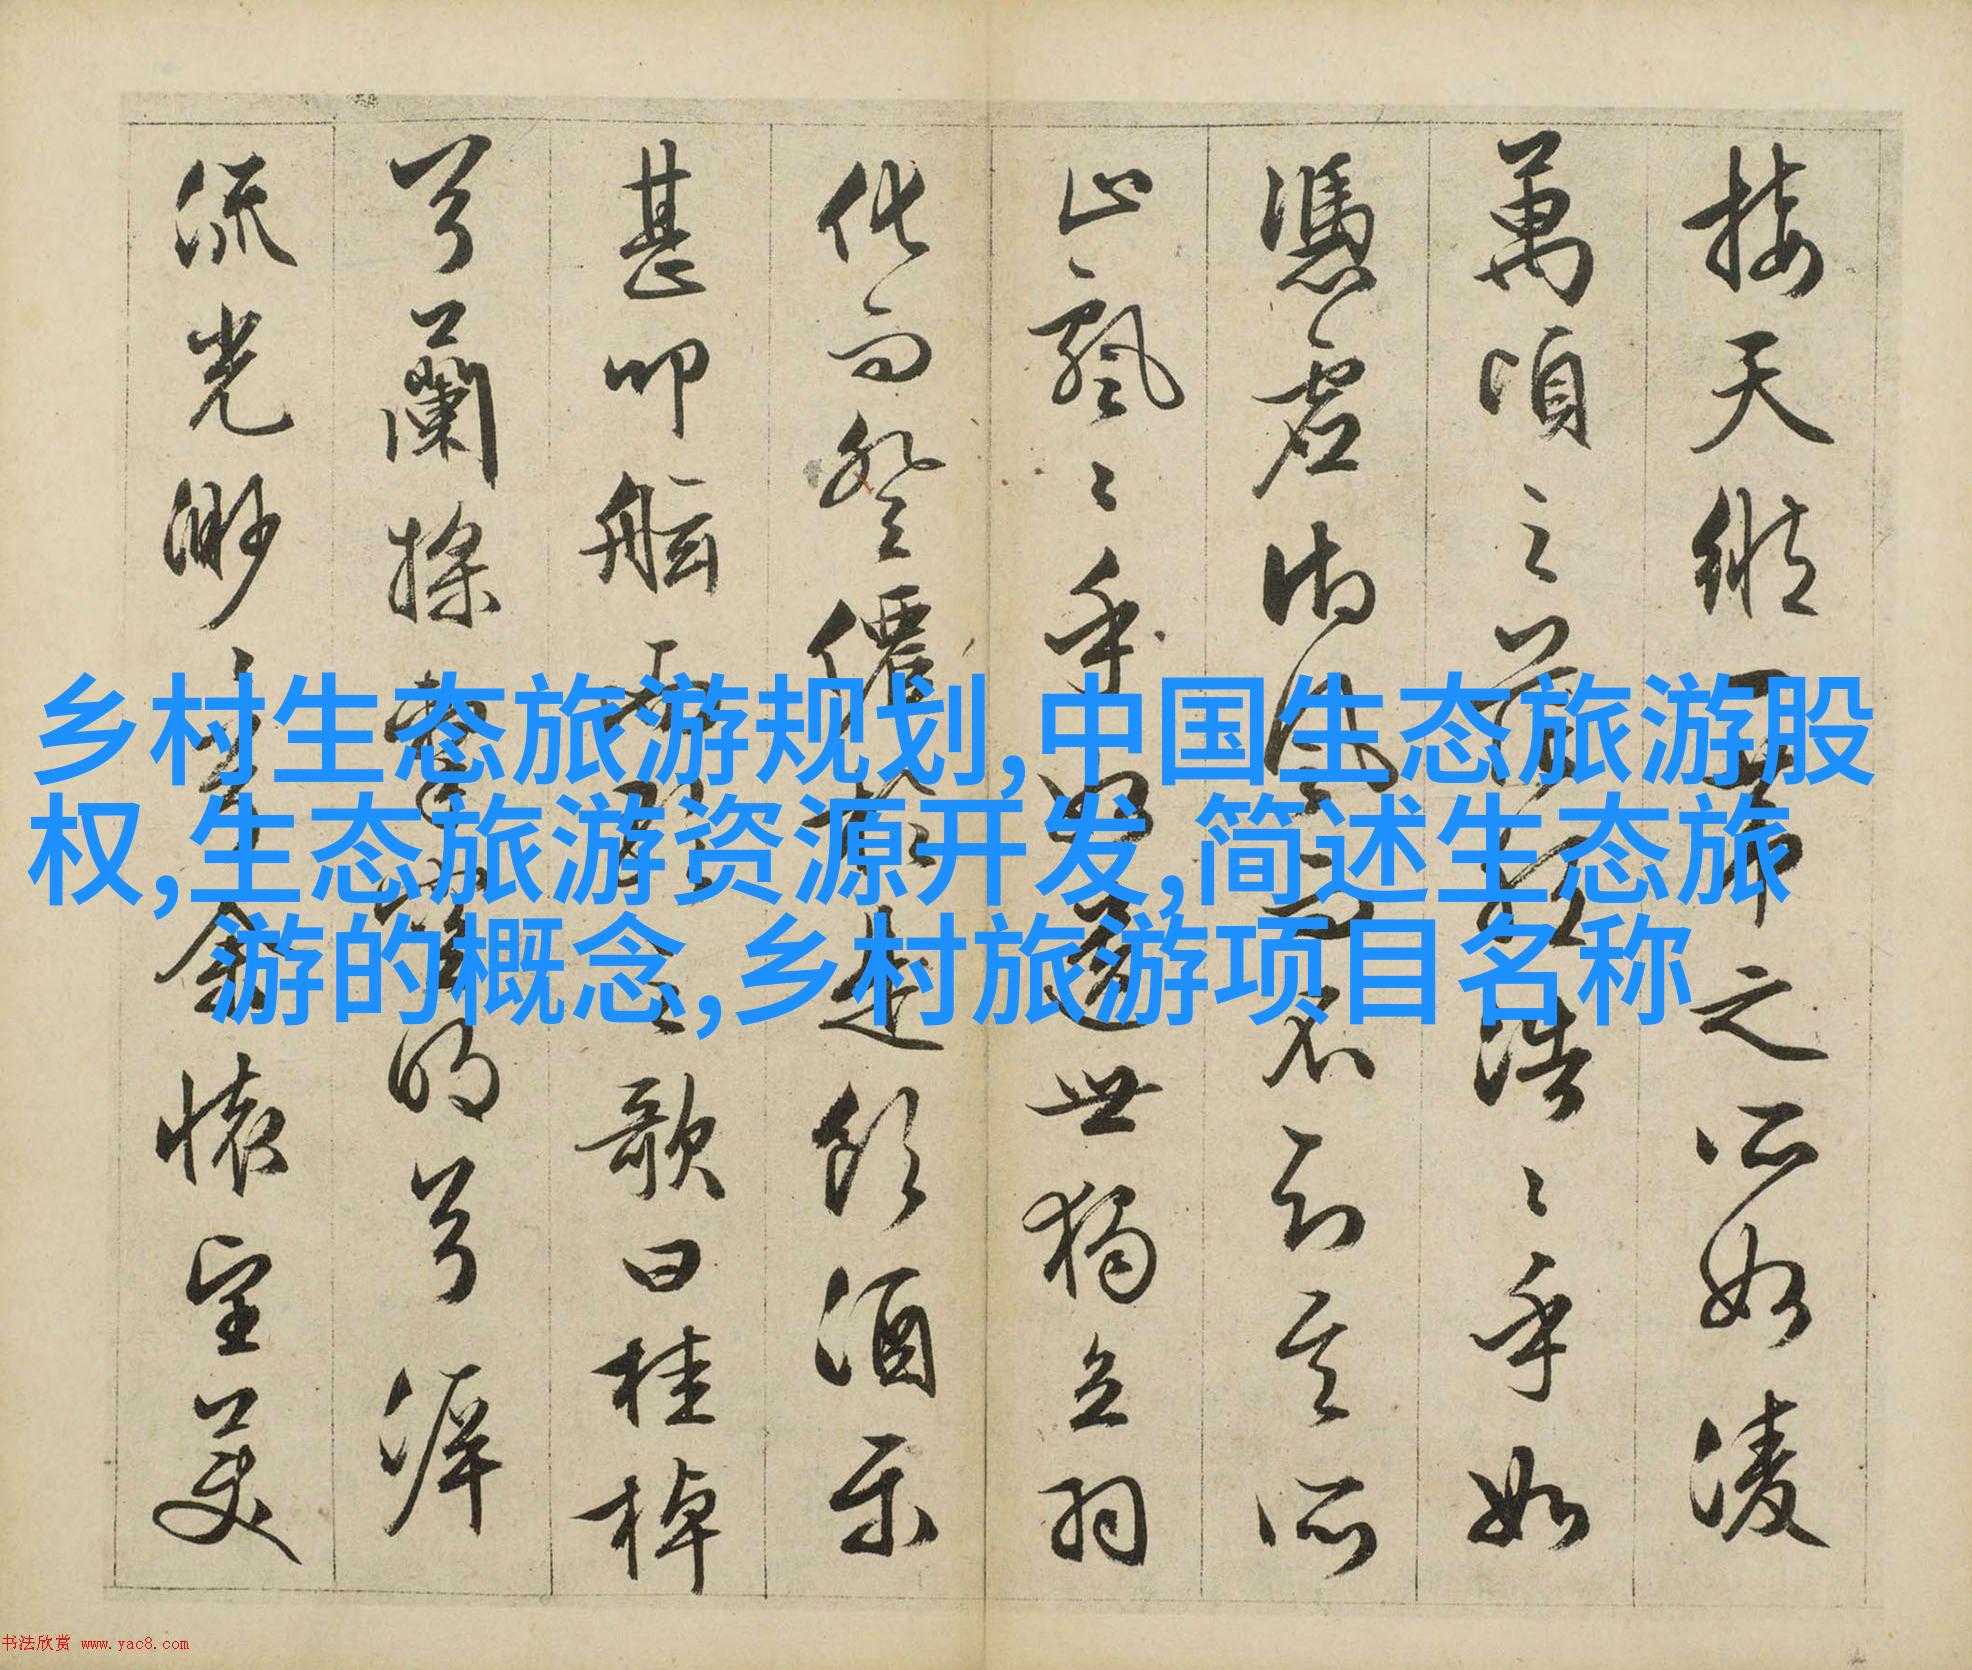 接天縱一葦之所如凌
萬頃之茫然浩〻乎如
憑虛御風而不知其所
止飄〻乎如遺世獨立羽
化而登僊於是飲酒樂
甚叩舷而歌之歌曰桂棹
兮蘭槳擊空明兮泝
流光渺〻兮余懷望美
乡村生态旅游规划,中国生态旅游股
权,生态旅游资源开发,简述生态旅
游的概念,乡村旅游项目名称
书法欣赏 www.yac8.com